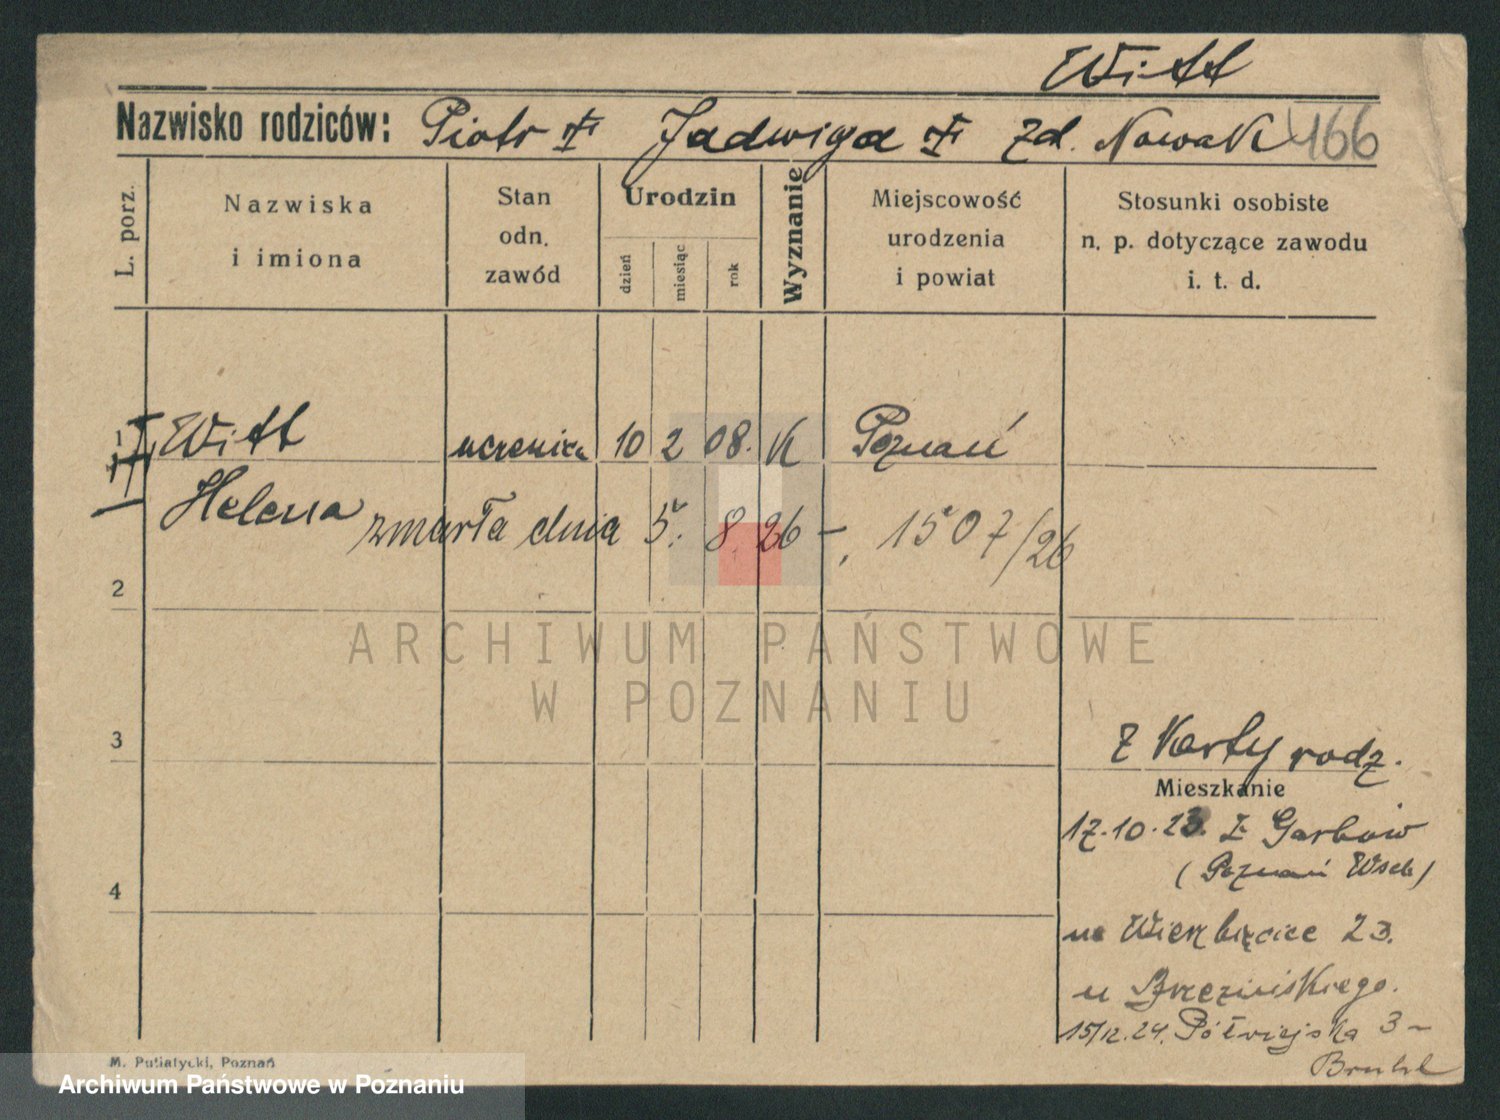 Witt
Nazwisko rodziców: Piotr Jadwiga zd. Nowak 466
L. porz. Nazwiska i imiona Stan odn. zawód Urodzin dzień miesiąc rok Wyznanie Miejscowość urodzenia i powiat Stosunki osobiste n. p. dotyczące zawodu i. t. d.
Witt uczenica 10 2 08. K Poznań
Helena zmarła dnia 5. 8 26 – 1507/26
2
ARCHIWUM PAŃSTWOWE
W POZNANIU
3
z Karty rodz.
Mieszkanie
17.10.23. z Garbów
(Poznań Wsch)
4
na Wierzbięcice 23.
u Brzezińskiego.
15/12.24. Półwiejska 3 –
M. Putiatycki, Poznań
Archiwum Państwowe w Poznaniu